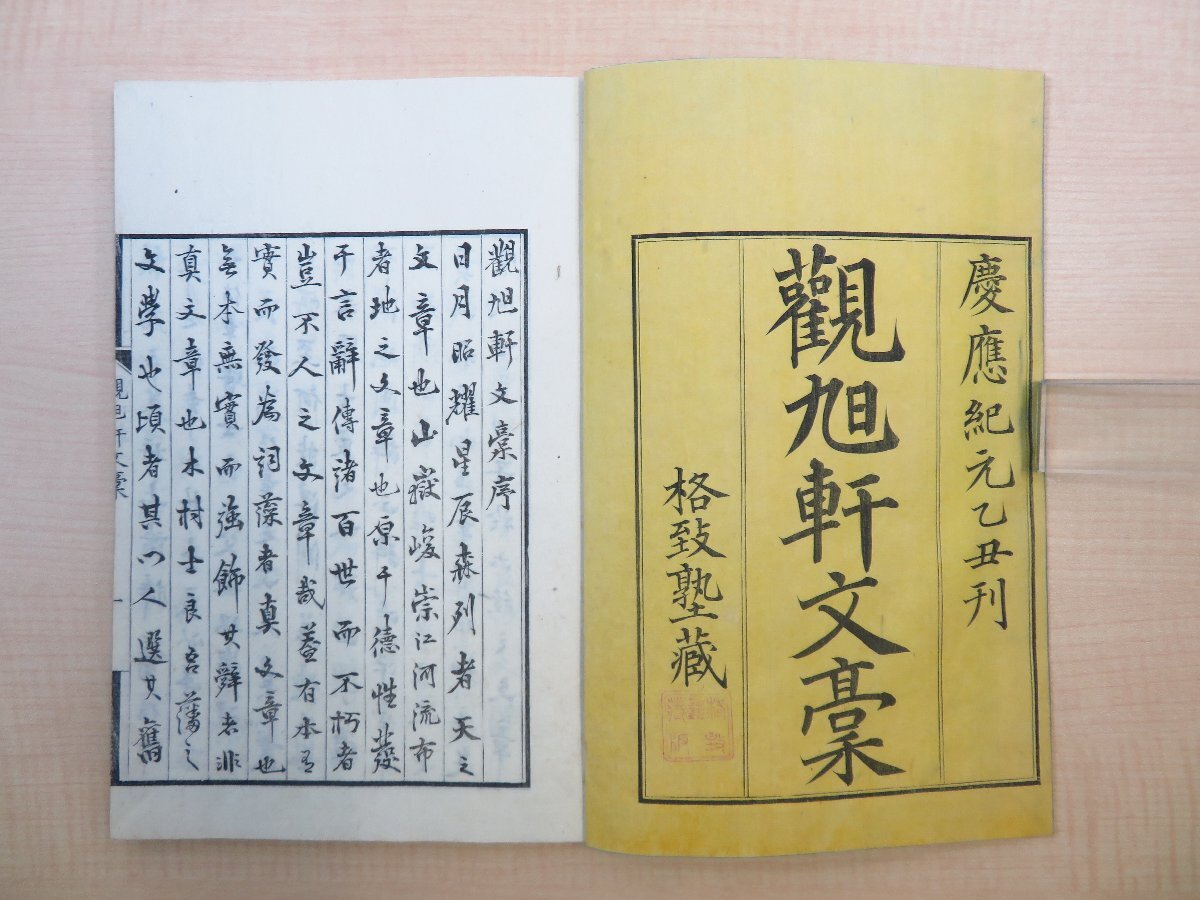 慶應紀元乙丑刊
觀旭軒文稾
格致塾藏
觀旭軒文稾序
日月昭耀星辰森列者天之
文章也山嶽峻崇江河流布
者地之文章也原于德性發
于言辭傳諸百世而不朽者
豈不人之文章哉蓋有本有
實而發為詞藻者真文章也
無本無實而強飾其辭者非
真文章也木村士良吾藩之
文學也頃者其門人選其舊
觀旭軒文稾